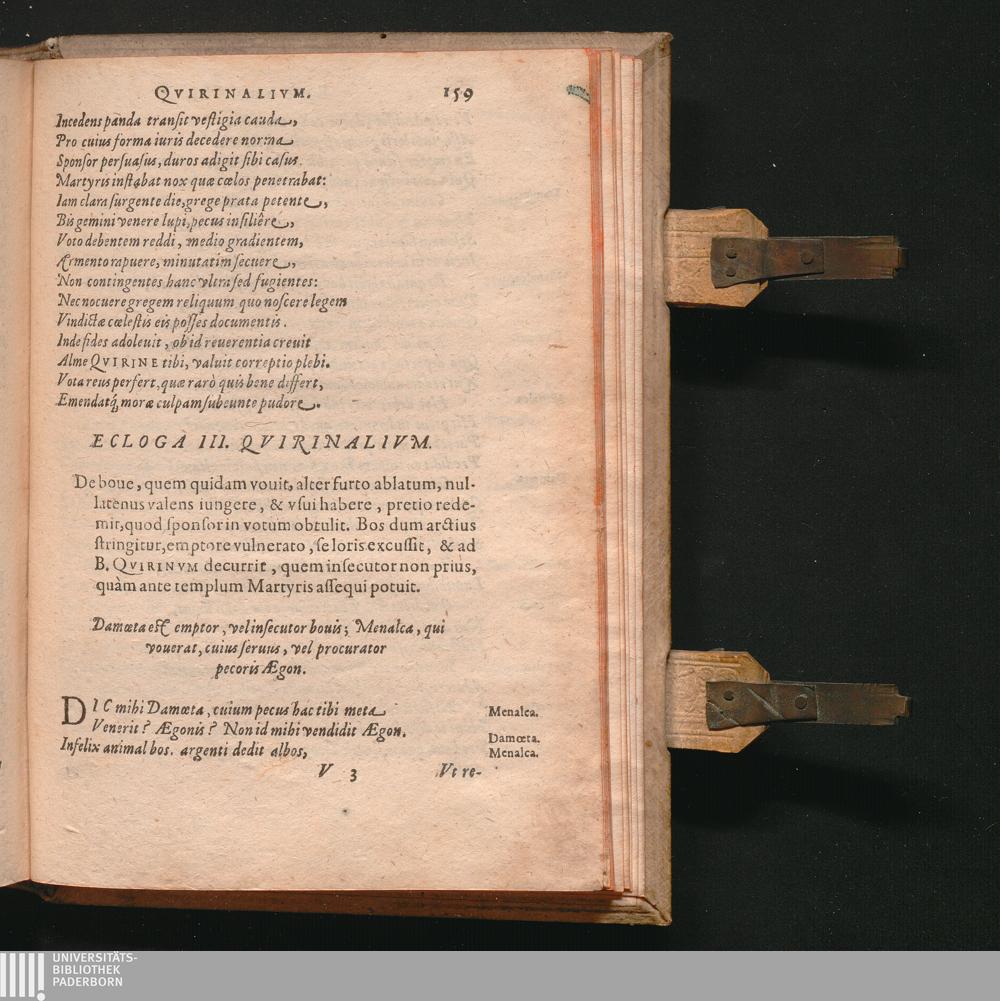 QVIRINALIVM. 159
Incedens panda transit vestigia cauda,
Pro cuius forma iuris decedere norma
Sponsor persuasus, duros adigit sibi casus.
Martyris instabat nox quæ cœlos penetrabat:
Iam clara surgente die, grege prata petente,
Bis gemini venere lupi, pecus insiliêre,
Voto debentem reddi, medio gradientem,
Armento rapuere, minutatim secuere,
Non contingentes hanc vltra sed fugientes:
Nec nocuere gregem reliquum quo noscere legem
Vindictæ cœlestis eis posses documentis.
Inde fides adoleuit, ob id reuerentia creuit
Alme QVIRINE tibi, valuit correptio plebi.
Vota reus perfert, quæ rarò quis bene differt,
Emendatq́, moræ culpam subeunte pudore.
ECLOGA III. QVIRINALIVM.
De boue, quem quidam vouit, alter furto ablatum, nul-
latenus valens iungere, & vsui habere, pretio rede-
mit, quod sponsor in votum obtulit. Bos dum arctius
stringitur, emptore vulnerato, se loris excussit, & ad
B. QVIRINVM decurrit, quem insecutor non prius,
quàm ante templum Martyris assequi potuit.
Damœta est emptor, vel insecutor bouis; Menalca, qui
vouerat, cuius seruus, vel procurator
pecoris Ægon.
DIC mihi Damœta, cuium pecus hac tibi meta Menalca.
Venerit? Ægonis? Non id mihi vendidit Ægon. Damœta.
Infelix animal bos. argenti dedit albos, Menalca.
V 3 Vt re-
UNIVERSITÄTS-
BIBLIOTHEK
PADERBORN